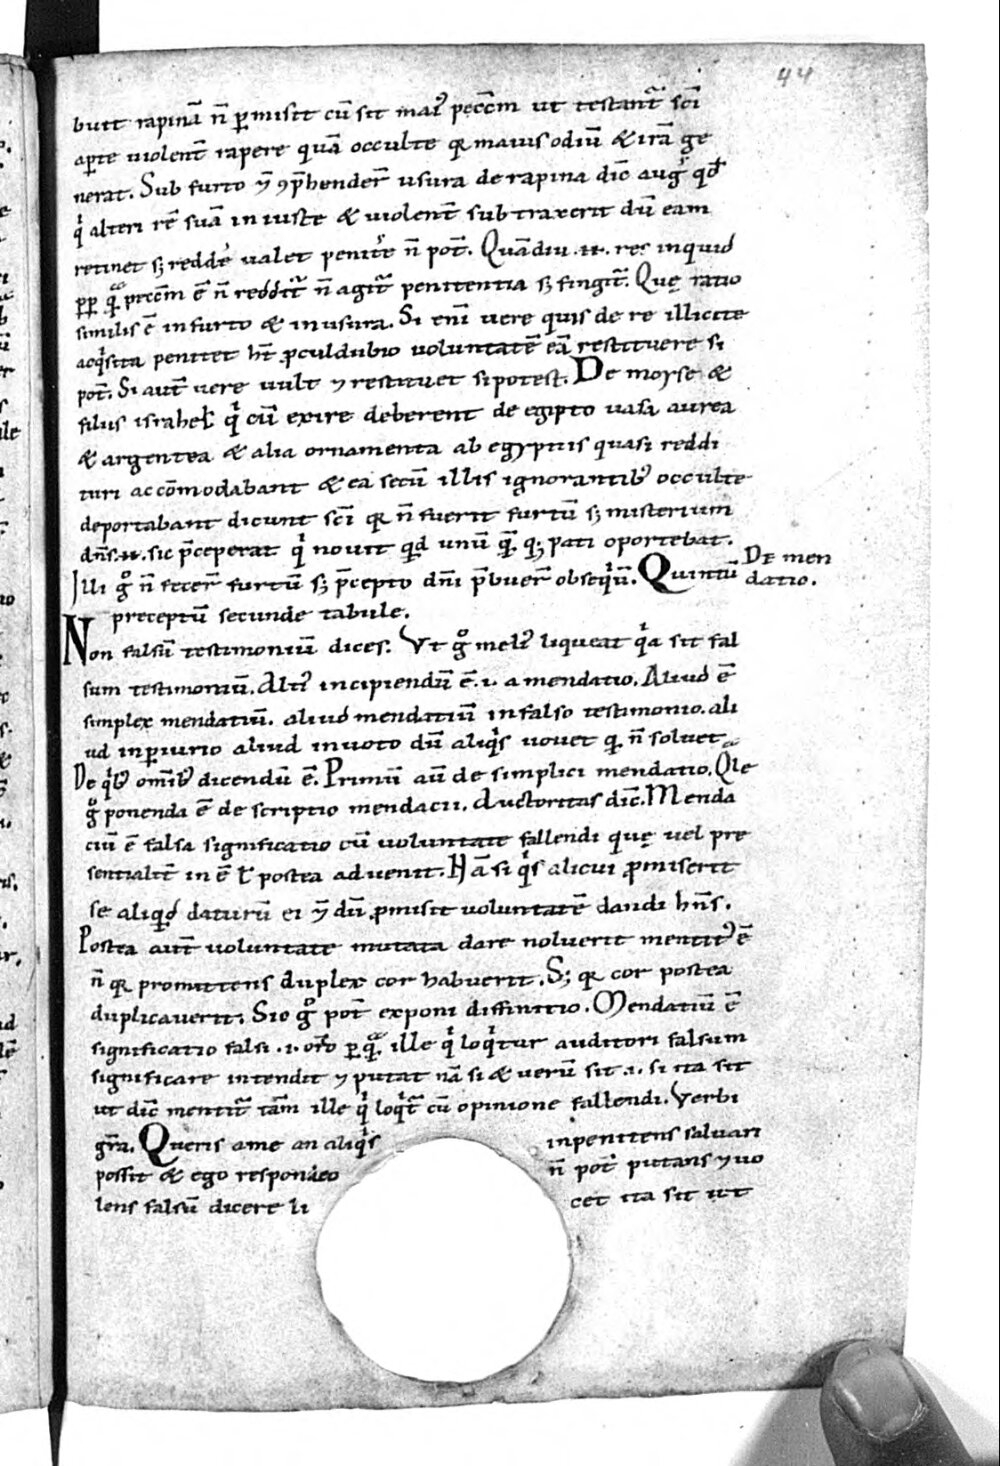 44
buit rapinā n̄ ꝑmisit cū sit mai᷒ pecc̄m ut testant̄ sc̄i
aꝑte uiolent̄ rapere quā occulte qr maius odiū & irā ge
nerat. Sub furto ⁊̄ ꝯp̄hender̄ usura de rapina dic̄ aug᷒ qd̄
qͥ alteri rē suā iniuste & uiolent̄ subtraxerit dū eam
retinet ſꝫ redde᷒ ualet penite᷒ n̄ pot̄. Quādiu .n. res inquid
ꝓp qᵃ̄ pecc̄m ē n̄ reddit᷒ n̄ agit᷒ penitentia ſꝫ fingit᷒. Quę ratio
similis ē in furto & in usura. Si en̄i uere quis de re illicite
acqͥsita penitet ht̄ ꝓculdubio uoluntatē eā restituere si
pot̄. Si aut̄ uere uult ⁊ restituet si potest. De moyse &
filiis israhel qͥ cū exire deberent de egipto uasa aurea
& argentea & alia ornamenta ab egyptiis quasi reddi
turi accōmodabant & ea secū illis ignorantib᷒ occulte
deportabant dicunt sc̄i qr n̄ fuerit furtū ſꝫ misterium
dn̄s .n. sic p̄ceperat qͥ nouit qd unū qm̄ qꝫ pati oportebat.
Illi gͦ n̄ fecer̄ furtū ſꝫ p̄cepto dn̄i p̄buer̄ obseqͥū. Quintū
De men
datio.
preceptū secunde tabule.
Non falsū testimoniū dices. Vt gͦ meli᷒ liqueat qͥa sit fal
sum testimoniū. Alti᷒ incipiendū ē .i. a mendatio. Aliud ē
simplex mendatiū. aliud mendatiū in falso testimonio. ali
ud in ꝑiurio aliud in uoto dū aliqͥs uouet qr n̄ soluet
De qͥb᷒ om̄ib᷒ dicendū ē. Primū aū de simplici mendatio. Qᵃle
gͦ ponenda ē descriptio mendacii. Auctoritas dic̄. Menda
ciū ē falsa significatio cū uoluntate fallendi quę uel pre
sentialit̄ in ē ł postea aduenit. Nā si qͥs alicui ꝓmiserit
se aliqͥd daturū ei ⁊̄ dū ꝓmisit uoluntatē dandi hn̄s.
Postea aut̄ uoluntate mutata dare noluerit mentit᷒ ē
n̄ qr promittens duplex cor habuerit. Sꝫ qr cor postea
duplicauerit. Sic gͦ pot̄ exponi diffinitio. Mendatiū ē
significatio falsi .i. or̄o ꝑ qᵃ̄ ille qͥ loqͥtur auditori falsum
significare intendit ⁊ putat nā si & uerū sit .i. si ita sit
ut dic̄ mentit᷒ tam̄ ille qͥ loqͥt᷒ cū opinione fallendi. Verbi
gr̄a. Queris a me an aliqͥs inpenitens saluari
possit & ego respondeo n̄ pot̄ putans ⁊ uo
lens falsū dicere li cet ita sit ut